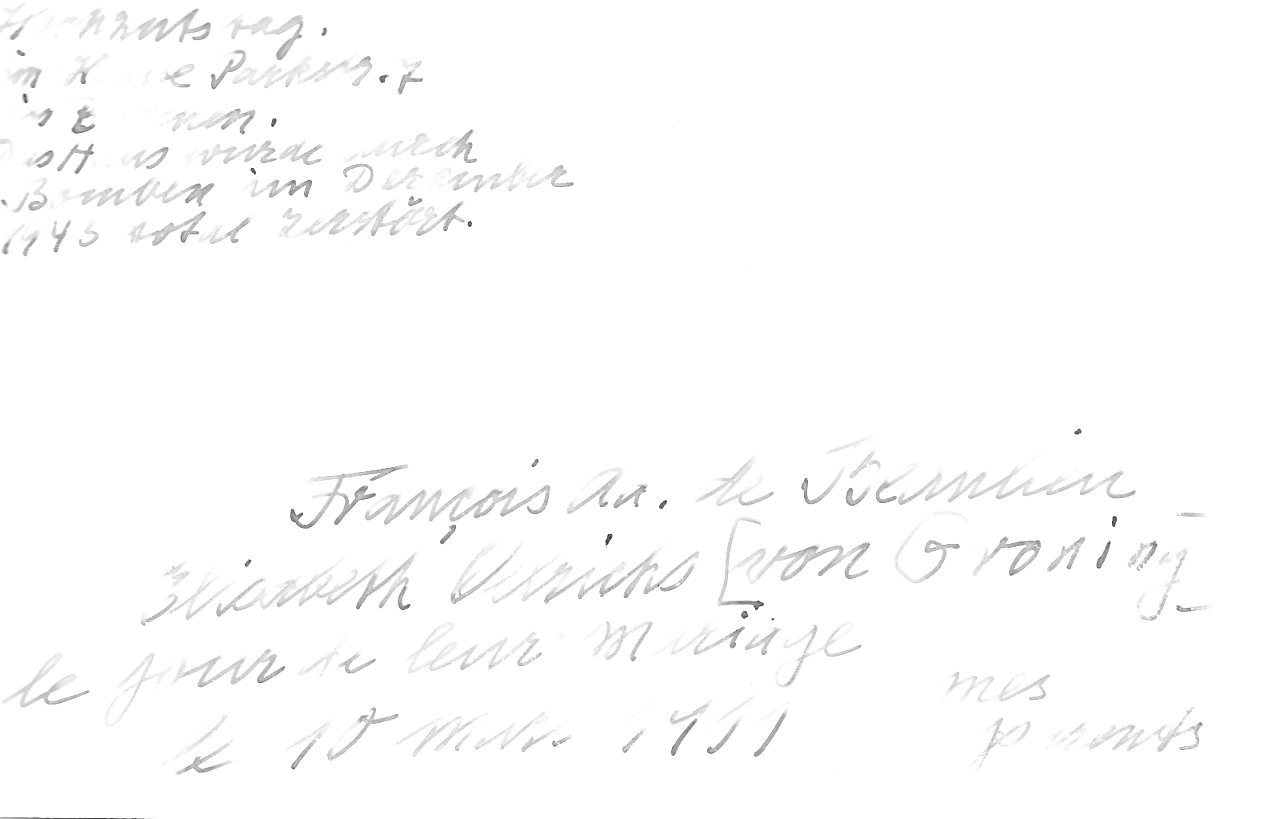 Hochzeitstag.
im Hause Parkstr. 7
in Bremen.
Das Haus wurde durch
Bomben im Dezember
1943 total zerstört.
François An. de
Elisabeth Ulrichs [von Gröning]
le jour de leur mariage
le 10 1911
mes
parents